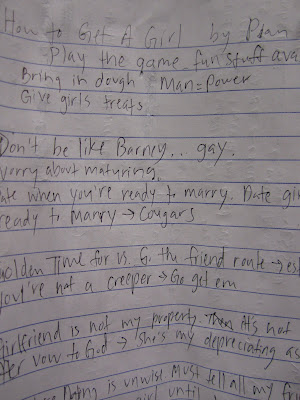 How to Get A Girl by
Play the game fun stuff
Bring in dough Man=Power
Give girls treats
Don't be like Barney.. gay.
worry about maturing.
ate when you're ready to marry. Date
ready to marry → Cougars
olden Time for us. G. thu friend route →
you're not a creeper → Go get em
irlfriend is not my property. Then it's not
ter vow to God → She's my depreciating as
is unwise Must tell all my
girl until